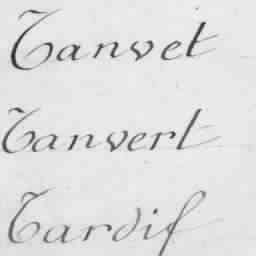 Tanvet
Tanvert
Tardif